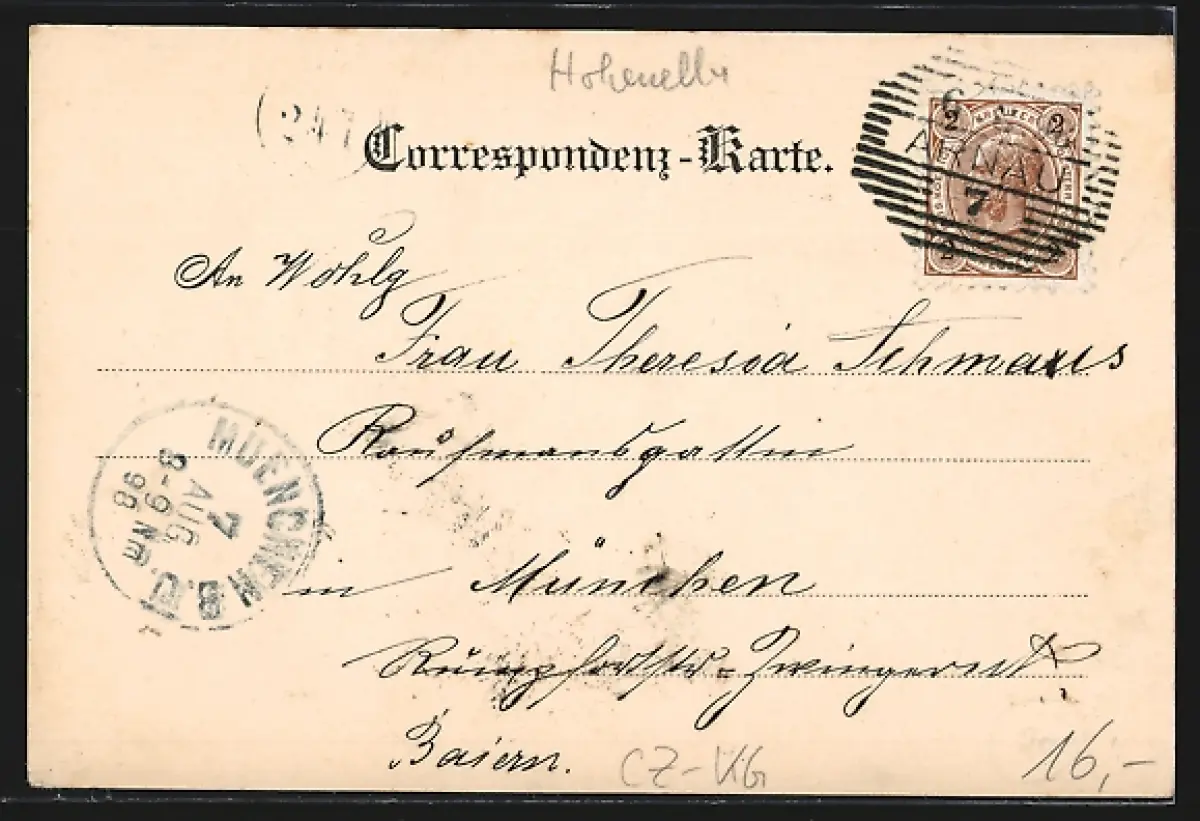 Hohenelbe
(247)
Correspondenz-Karte.
2 KREUZER 2
ARNAU
7
2 2
An Wohlg
Frau Theresia Schmaus
Kaufmansgattin
MUENCHEN B.U.
7
AUG
8-9 Nm
98
in München
Baiern.
CZ-VG
16,-